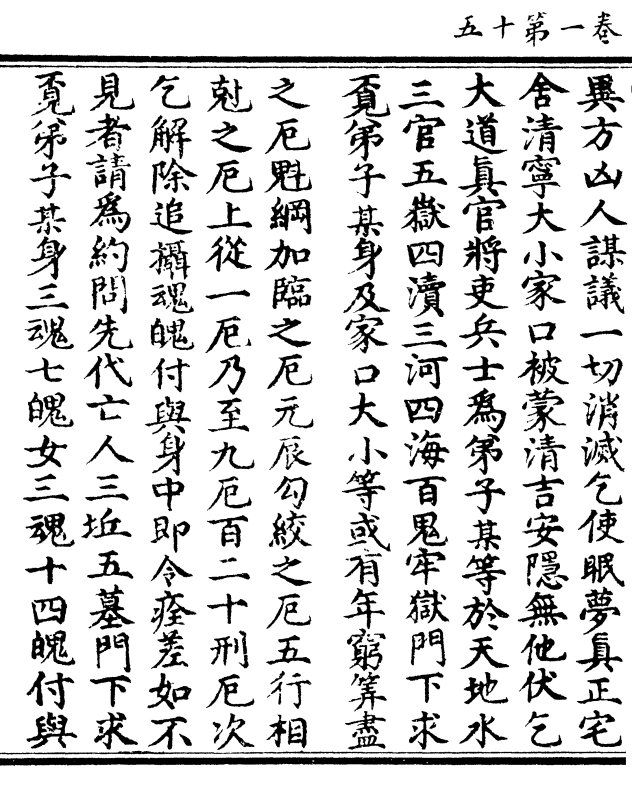 卷一第十五
異方凶人謀議一切消滅乞使眠夢真正宅
舍清寧大小家口被蒙清吉安隱無他伏乞
大道真官將吏兵士為弟子某等於天地水
三官五嶽四瀆三河四海百鬼牢獄門下求
覓弟子某身及家口大小等或有年窮筭盡
之厄魁綱加臨之厄元辰勾絞之厄五行相
尅之厄上從一厄乃至九厄百二十刑厄次
乞解除追攝魂魄付與身中即令痊差如不
見者請為約問先代亡人三坵五墓門下求
覓弟子某身三魂七魄女三魂十四魄付與